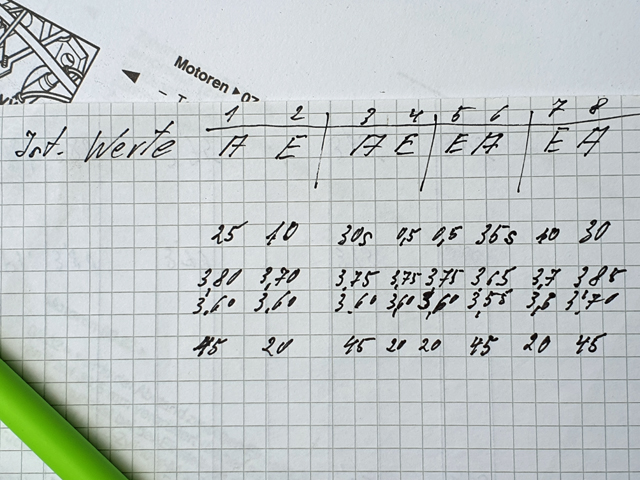 Motoren ▶07
1 2 3 4 5 6 7 8
Ist. Werte A E A E E A E A
25 10 30s 0,5 0,5 35s 10 30
3,80 3,70 3,75 3,75 3,75 3,65 3,7 3,85
3,60 3,60 3,60 3,60 3,60 3,55 3,5 3,70
45 20 45 20 20 45 20 45